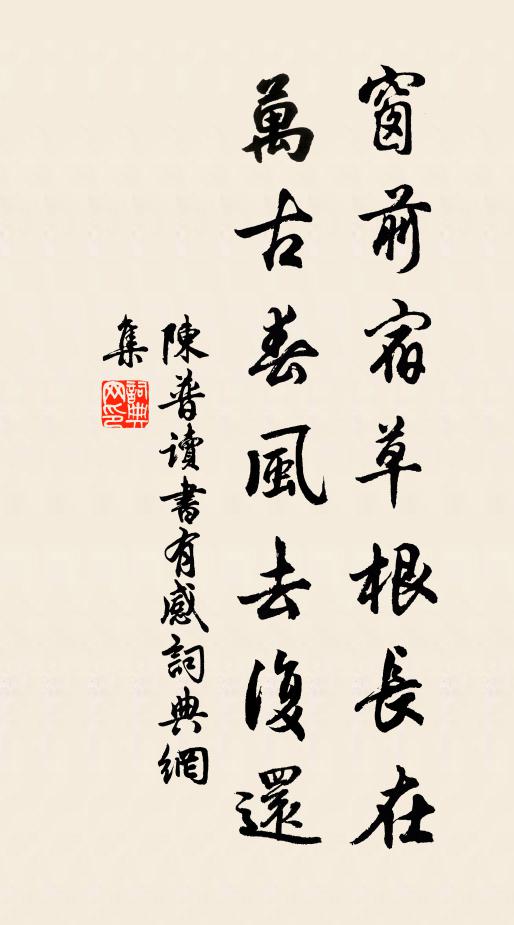 窗前宿草根長在
萬古春風去復還
陳普讀書有感詞典網
集
詞典網印